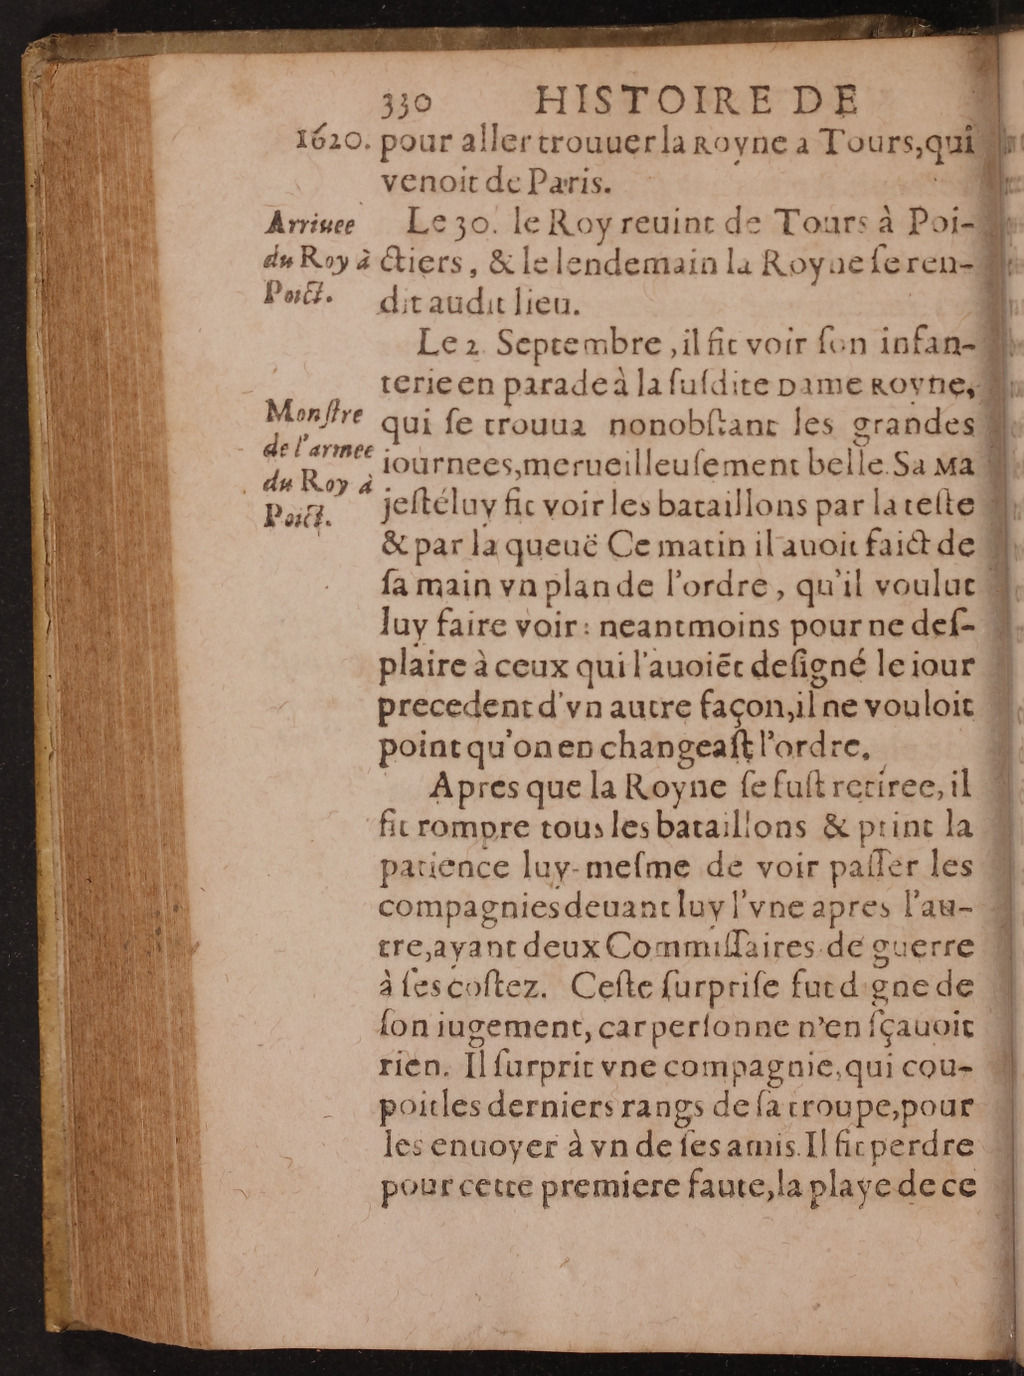 330 HISTOIRE DE
1620. pour aller trouuer la Royne a Tours, qui
venoit de Paris.
Arriuee
du Roy à
Poict.
Le 30. le Roy reuint de Tours à Poi-
ctiers, & le lendemain la Royne ſe ren-
dit audit lieu.
Le 2. Septembre, il fit voir ſon infan-
terie en parade à la ſuſdite Dame Royne,
Monſtre
de l'armee
du Roy à
Poict.
qui ſe trouua nonobſtant les grandes
iournees, merueilleuſement belle. Sa Ma
jeſté luy fit voir les bataillons par la teſte
& par la queuë Ce matin il auoit faict de
ſa main vn plan de l'ordre, qu'il voulut
luy faire voir: neantmoins pour ne deſ-
plaire à ceux qui l'auoiẽt deſigné le iour
precedent d'vn autre façon, il ne vouloit
point qu'on en changeaſt l'ordre.
Apres que la Royne ſe fuſt retiree, il
fit rompre tous les bataillons & print la
patience luy-meſme de voir paſſer les
compagnies deuant luy l'vne apres l'au-
tre, ayant deux Commiſſaires de guerre
à ſes coſtez. Ceſte ſurpriſe fut d gne de
ſon iugement, car perſonne n'en ſçauoit
rien. Il ſurprit vne compagnie, qui cou-
poit les derniers rangs de ſa troupe, pour
les enuoyer à vn de ſes amis. Il fit perdre
pour cette premiere faute, la playe de ce